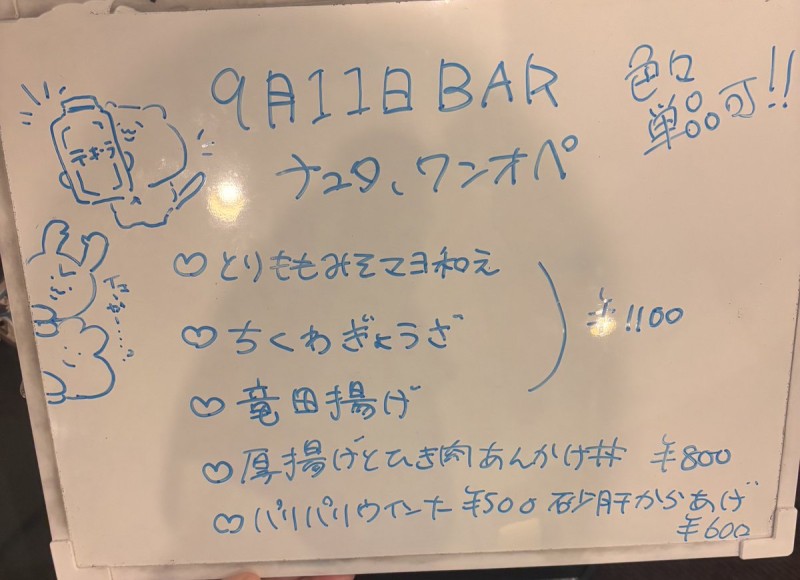 9月11日 BAR
色々
単品可!!
ナユタ、ワンオペ
テキーラ
♡とりももみそマヨ和え
♡ちくわぎょうざ
♡竜田揚げ
¥1100
♡厚揚げとひき肉あんかけ丼 ¥800
♡パリパリウインナー ¥500 砂肝からあげ
¥600